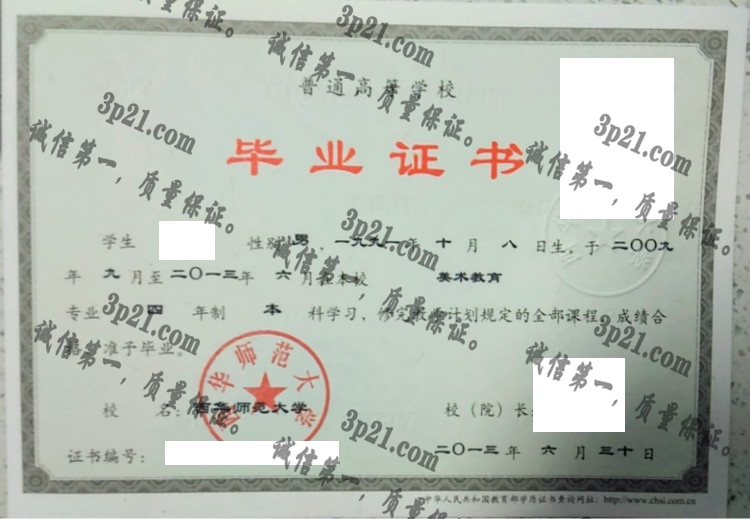 普通高等学校
毕业证书
学生 性别 男，一九九一年 十 月 八 日生，于 二〇〇九
年 九 月至 二〇一三年 六 月在本校 美术教育
专业 四 年制 本 科学习，修完教学计划规定的全部课程，成绩合
格，准予毕业。
校 名：西华师范大学 校（院）长：
西华师范大学
证书编号： 二〇一三年 六 月 三十日
中华人民共和国教育部学历证书查询网址：http://www.chsi.com.cn
3p21.com
诚信第一，质量保证。
3p21.com
诚信第一，质量保证。
3p21.com
诚信第一，质量保证。
3p21.com
诚信第一，质量保证。
3p21.com
诚信第一，质量保证。
3p21.com
诚信第一，质量保证。
3p21.com
诚信第一，质量保证。
3p21.com
诚信第一，